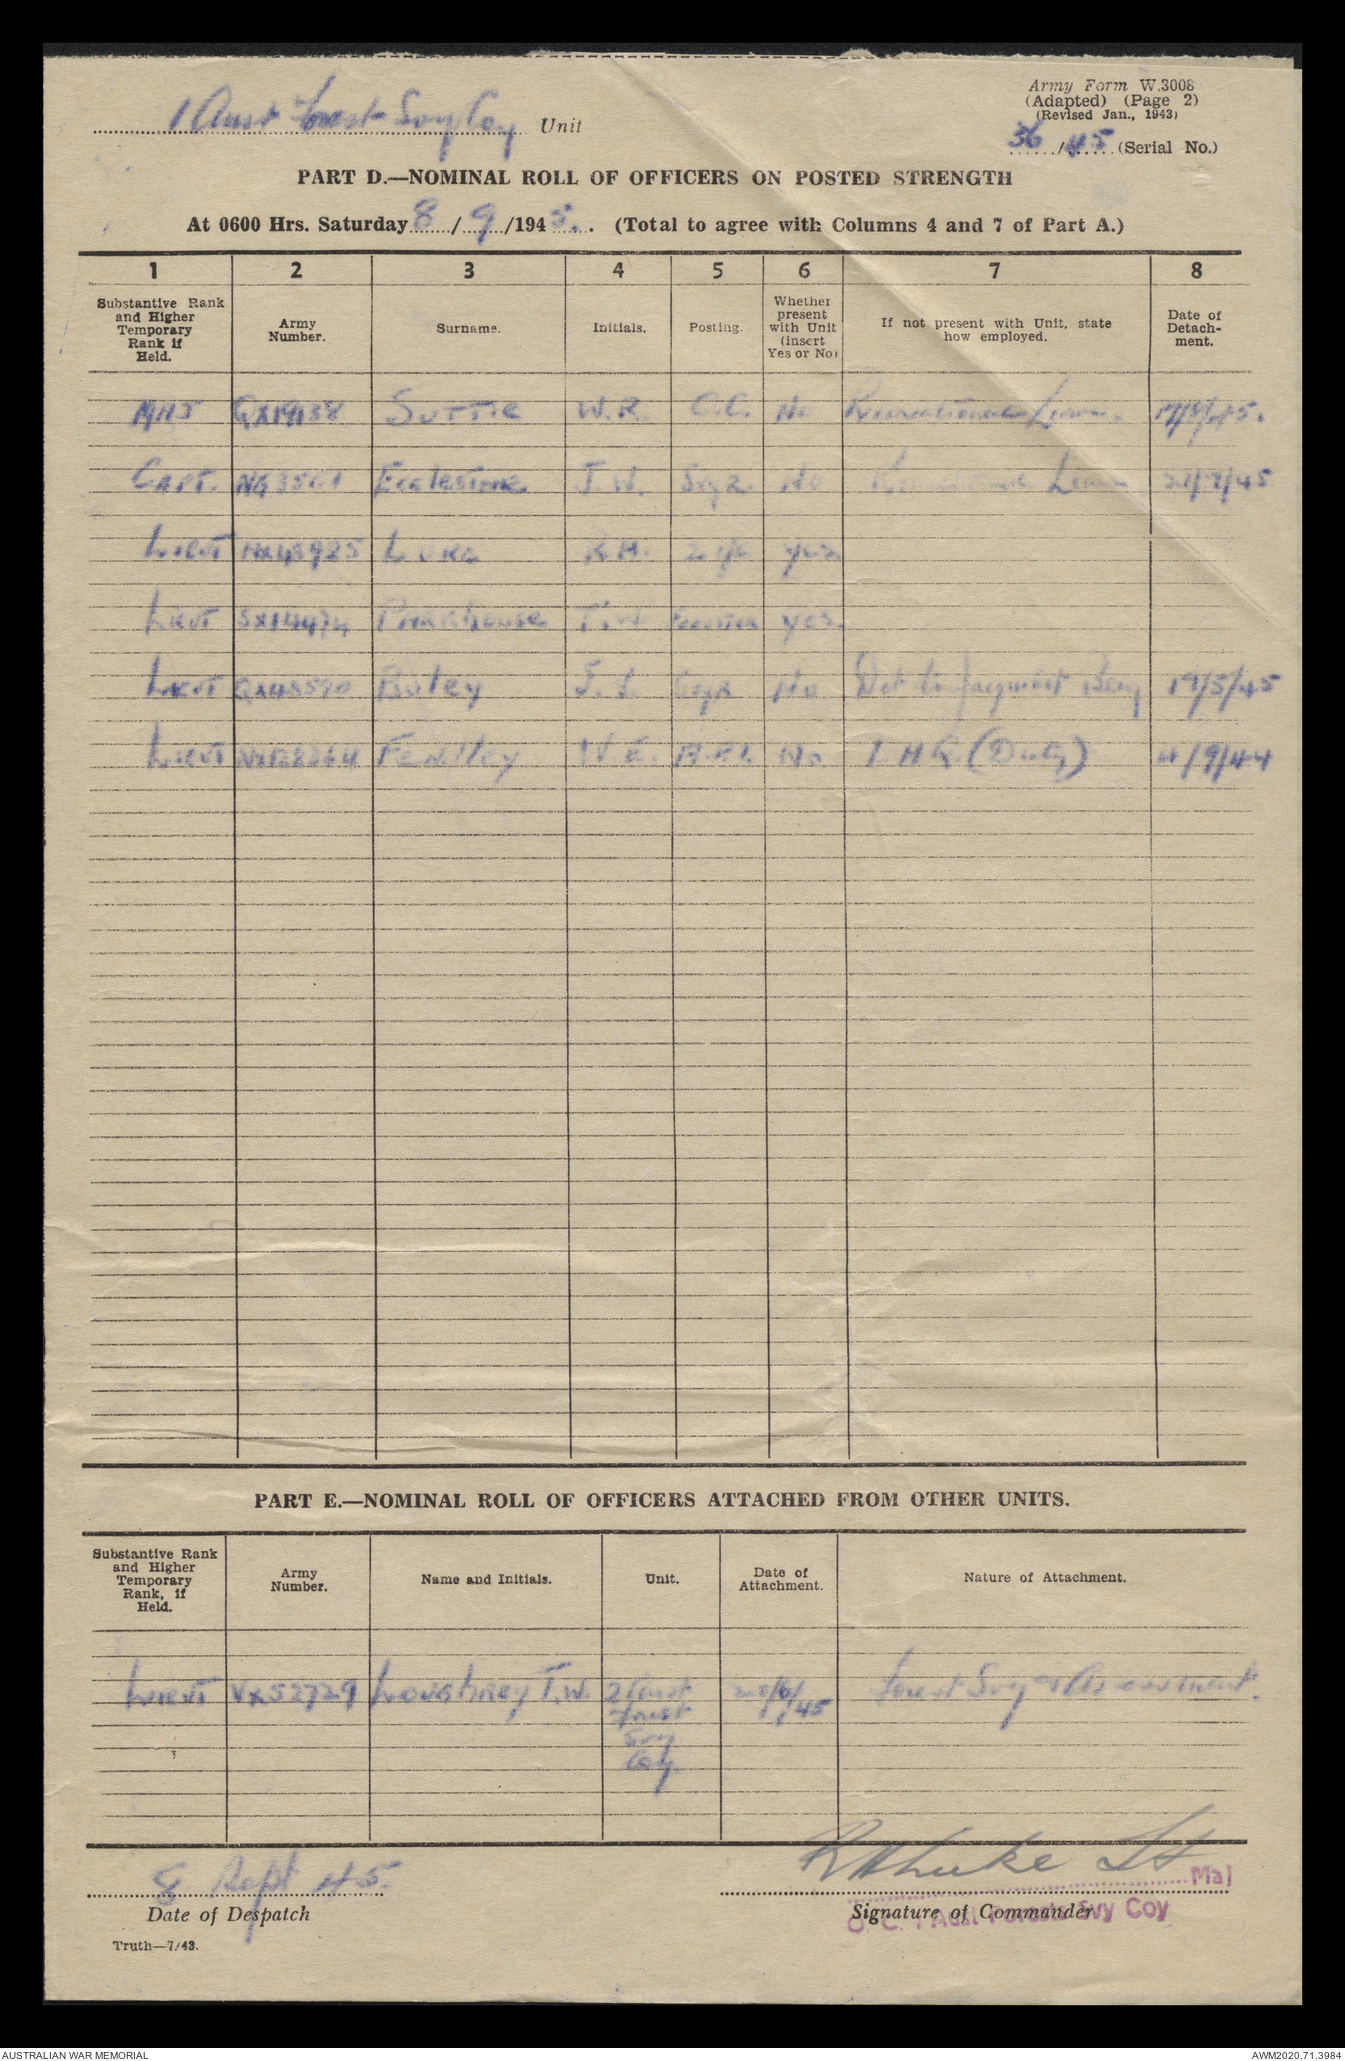 1 Aust Forest Svy Coy Unit
Army Form W.3008
(Adapted) (Page 2)
(Revised Jan., 1943)
36/45 (Serial No.)
PART D.—NOMINAL ROLL OF OFFICERS ON POSTED STRENGTH
At 0600 Hrs. Saturday 8/9/1945. (Total to agree with Columns 4 and 7 of Part A.)
1 2 3 4 5 6 7 8
Substantive Rank and Higher Temporary Rank if Held.
Army Number.
Surname.
Initials.
Posting.
Whether present with Unit (insert Yes or No)
If not present with Unit, state how employed.
Date of Detachment.
MAJ SUTTIE W.R. O.C. No Recreational Leave.
CAPT. Ecclestone J.W. No Leave /45
LIEUT LUKE R.H. Yes
LIEUT SX14474 T.W. Yes.
LIEUT J.S. No Det to 19/5/45
LIEUT Fendley W.E. No L.H.Q. (Duty) 4/9/44
PART E.—NOMINAL ROLL OF OFFICERS ATTACHED FROM OTHER UNITS.
Substantive Rank and Higher Temporary Rank, if Held.
Army Number.
Name and Initials.
Unit.
Date of Attachment.
Nature of Attachment.
LIEUT VX52729 Loughrey T.W. 2 Aust Forest Svy Coy. /45 Forest Svy & Assessment.
8 Sept 45.
Date of Despatch
R H Luke Lt
Maj
Signature of Commander
O.C. 1 Aust Forests Svy Coy
Truth—7/43.
AUSTRALIAN WAR MEMORIAL
AWM2020.71.3984